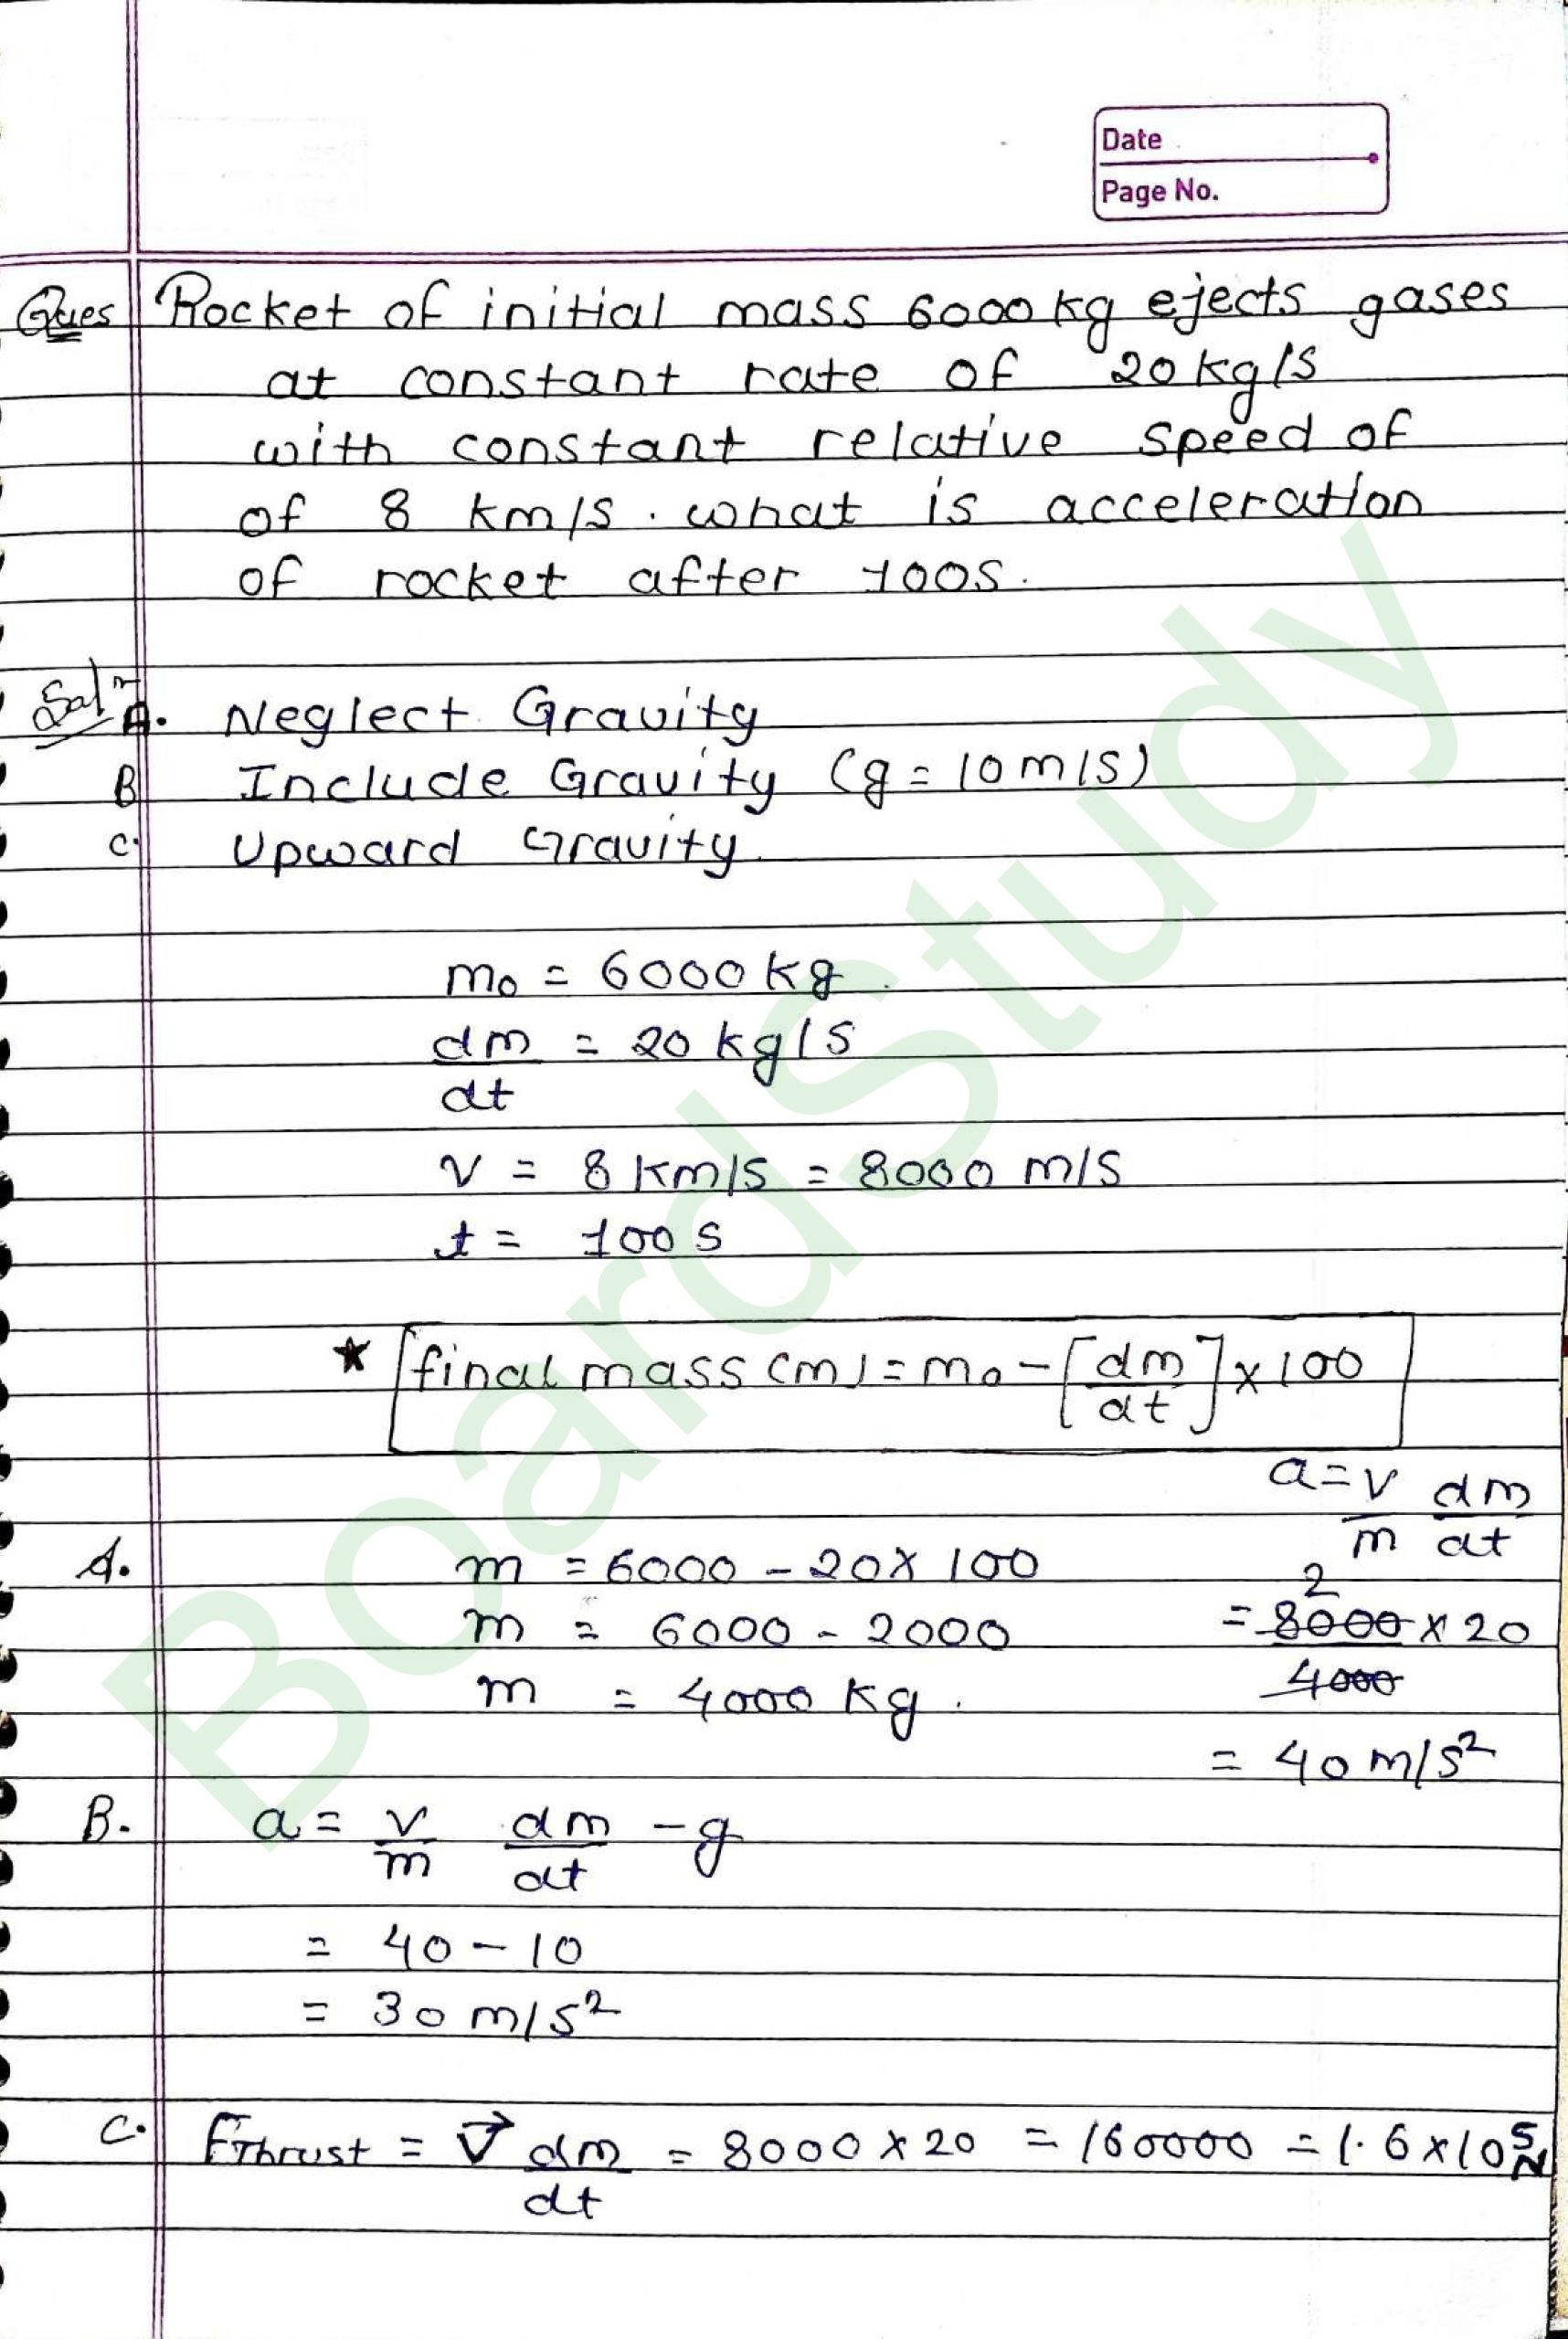 Date
Page No.
Ques Rocket of initial mass 6000 kg ejects gases
at constant rate of 20 kg/s
with constant relative speed of
of 8 km/s. what is acceleration
of rocket after 100s.
Solⁿ A. Neglect Gravity
B Include Gravity (g = 10 m/s)
C. Upward Gravity.
m₀ = 6000 kg.
dm/dt = 20 kg/s
v = 8 Km/s = 8000 m/s
t = 100 s
★ final mass (m) = m₀ - [dm/dt] × 100
a = v/m dm/dt
A. m = 6000 - 20 × 100
m = 6000 - 2000
= 8000 × 20 / 4000
2
m = 4000 Kg.
= 40 m/s²
B. a = v/m dm/dt - g
= 40 - 10
= 30 m/s²
C. FThrust = V⃗ dm/dt = 8000 × 20 = 160000 = 1.6 × 10⁵ N
BoardStudy